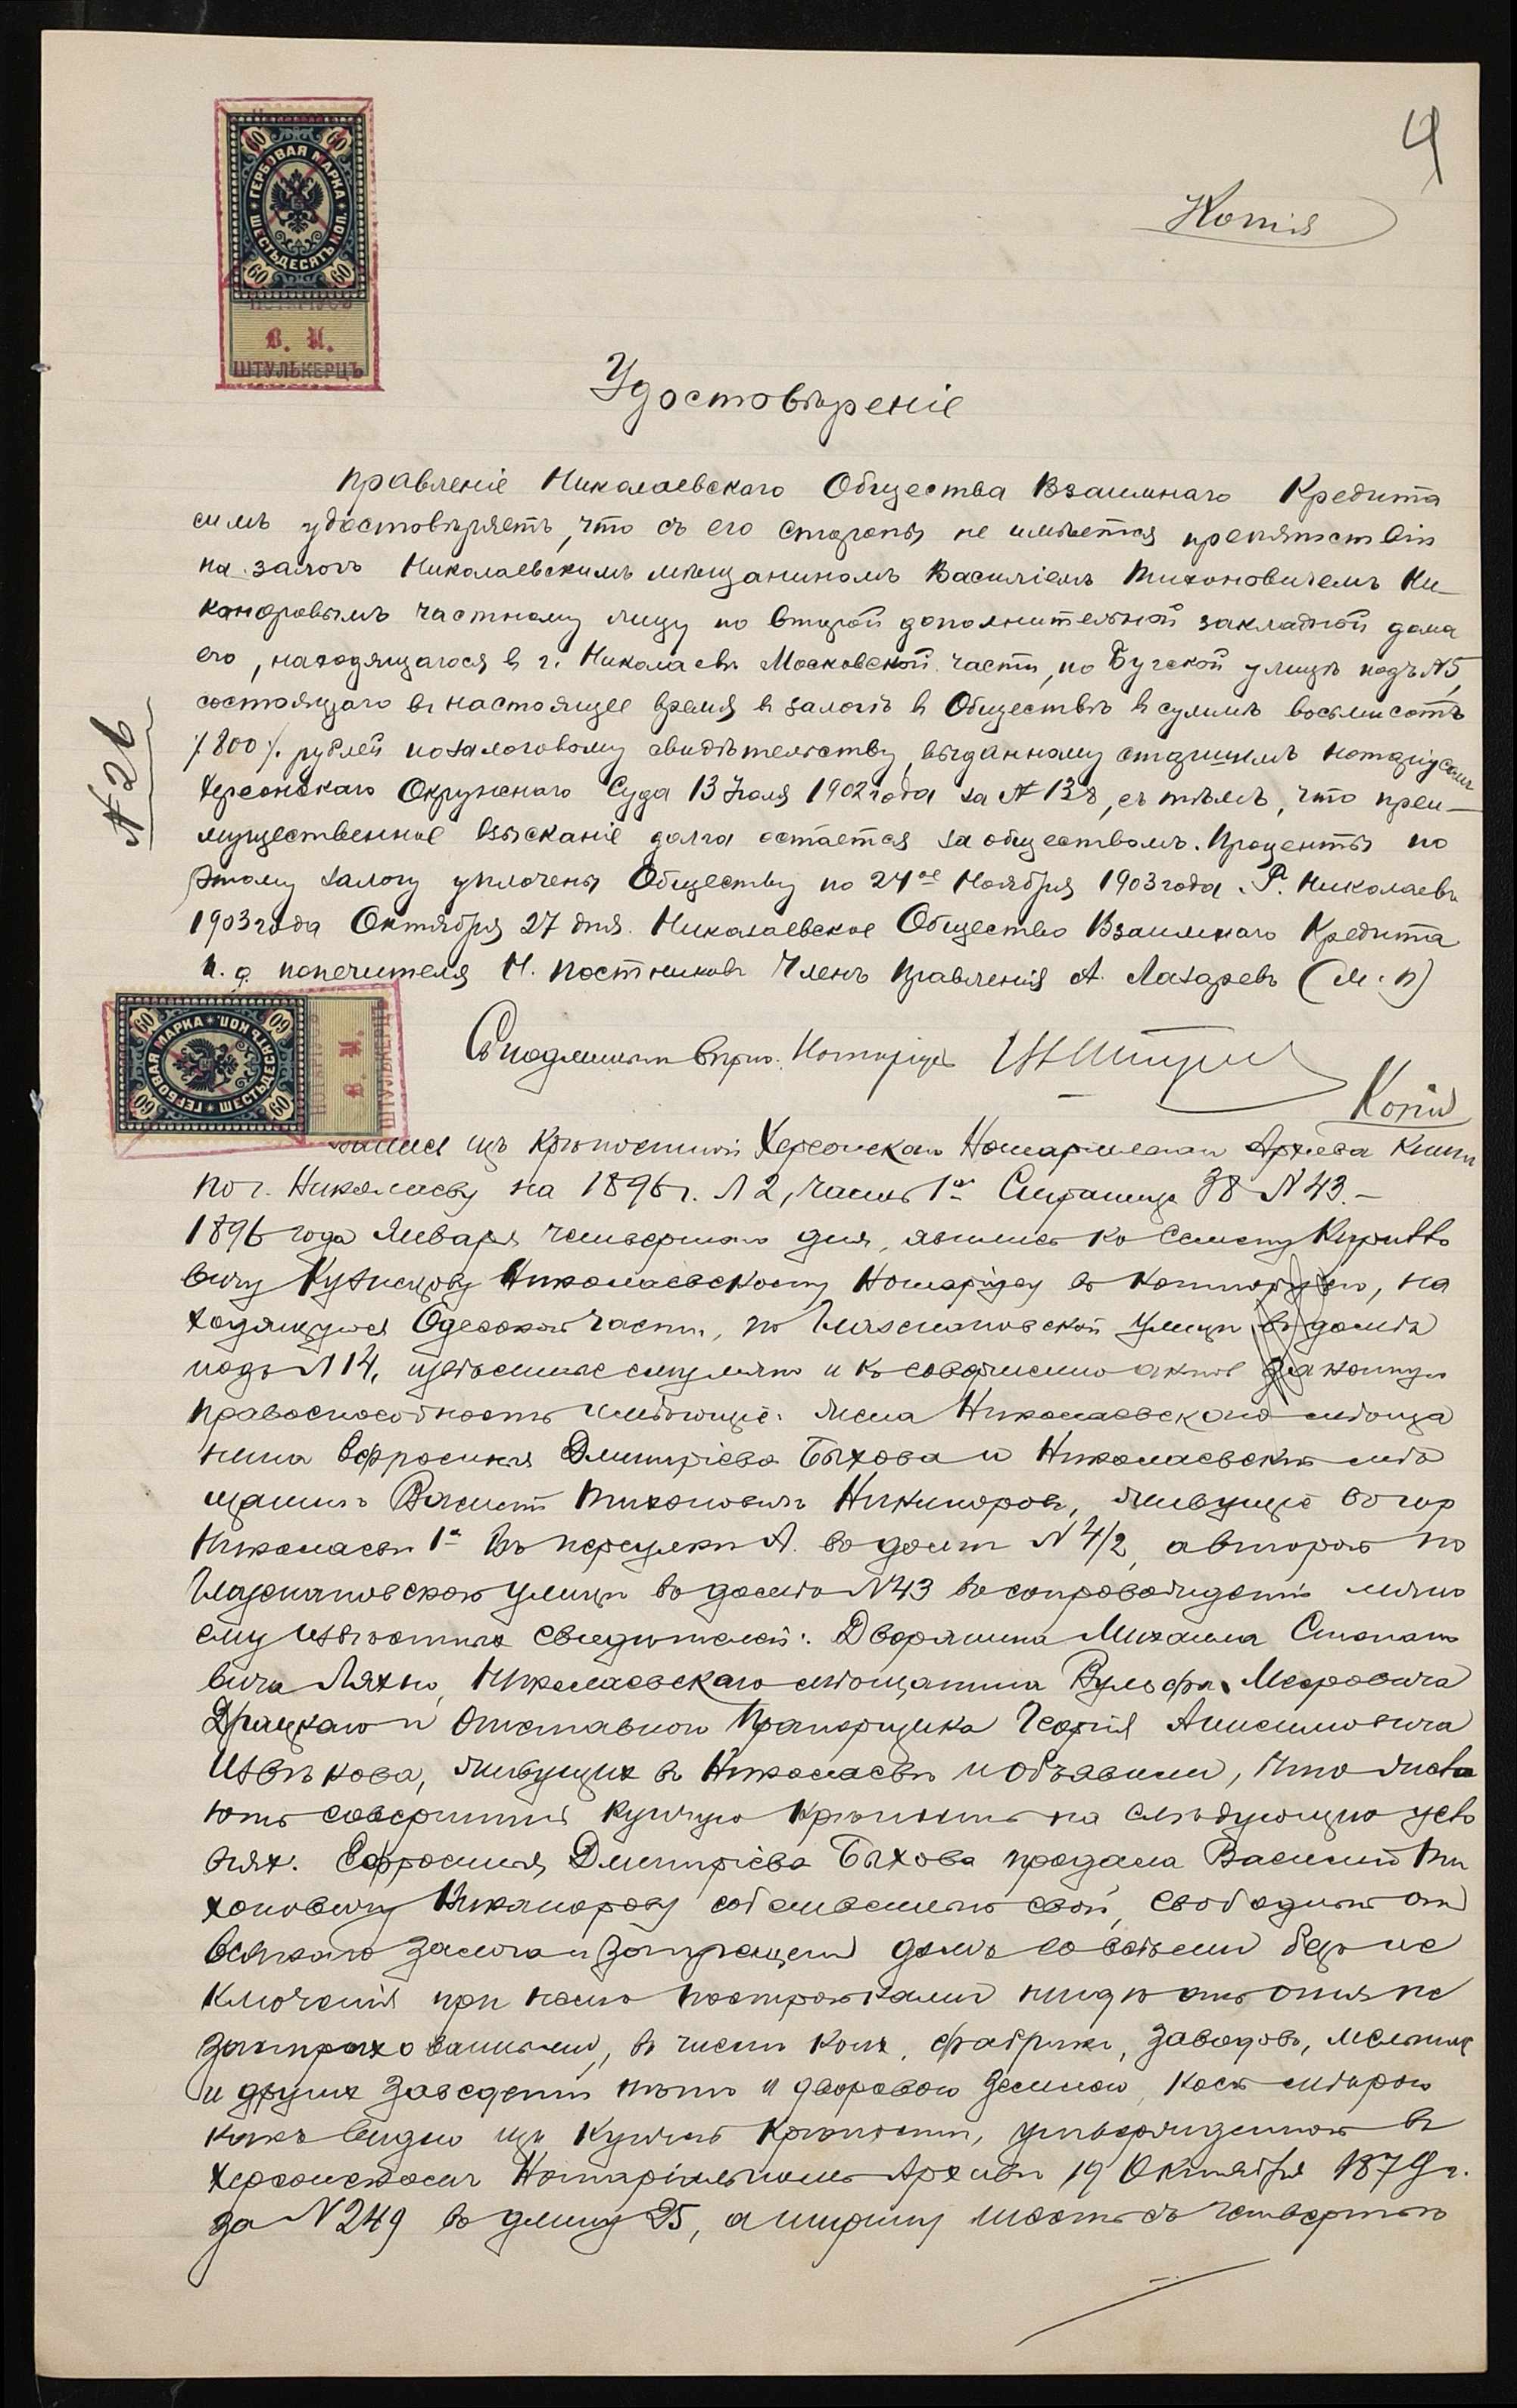 4
Копія
60 60
ГЕРБОВАЯ МАРКА
ШЕСТЬДЕСЯТЪ КОП.
60 60
В. И.
ШТУЛЬКЕРЦЪ
Удостовѣреніе
Правленіе Николаевскаго Общества Взаимнаго Кредита
симъ удостовѣряетъ, что съ его стороны не имѣется препятствій
на залогъ Николаевскимъ мѣщаниномъ Василіемъ Тихоновичемъ Ни-
каноровымъ частному лицу по второй дополнительной закладной дома
его, находящагося въ г. Николаевѣ Московской части, по Бугской улицѣ подъ №5,
состоящаго въ настоящее время въ залогѣ въ Обществѣ въ суммѣ восемьсотъ
/800/. рублей по залоговому свидѣтельству, выданному старшимъ нотаріусомъ
Херсонскаго Окружнаго Суда 13 Іюля 1902 года за №, съ тѣмъ, что преи-
мущественное взысканіе долга остается за обществомъ. Проценты по
этому залогу уплочены Обществу по 24ое Ноября 1903 года. Г. Николаевъ
1903 года Октября 27 дня. Николаевское Общество Взаимнаго Кредита
И. д. попечителя Н. Постниковъ Членъ Правленія А. Лазаревъ (М. П)
№26
Съ подлиннымъ вѣрно. Нотаріусъ
60 60
ГЕРБОВАЯ МАРКА
ШЕСТЬДЕСЯТЪ КОП.
60 60
В. И.
ШТУЛЬКЕРЦЪ
Копія
изъ Крѣпостной Херсонскаго Нотаріальнаго Архива Книги
по г. Николаеву на 1896 г. №2, часть 1ая Страница 38 №43.-
1896 года Января четвертаго дня, явились ко Семену
вичу Кузнецову Николаевскому Нотаріусу въ контору, на
ходящуюся Одесской части, по Глазенаповской улицѣ въ домѣ
подъ №14, извѣстные ему лично и къ совершенію актовъ законную
правоспособность имѣющіе: жена Николаевскаго мѣща
нина Евфросинія Дмитріева Быхова и Николаевскій мѣ
щанинъ Василій Тихоновичъ Никаноровъ, живущіе въ гор
Николаевѣ 1я въ переулкѣ въ домѣ №4/2, а второй по
Глазенаповской улицѣ въ домѣ №43 въ сопровожденіи лично
ему извѣстныхъ свидѣтелей: Дворянина Михаила Степано
вича Ляхно, Николаевскаго мѣщанина Вульфа Меровича
и отставного Прапорщика Георгія Анисимовича
Извѣкова, живущихъ въ Николаевѣ и объявили, что жела
ютъ совершить купчую крѣпость на слѣдующихъ усло
віяхъ: Евфросинія Дмитріева Быхова продала Василію Ти
хоновичу Никанорову собственный свой, свободный отъ
всякаго залога и запрещенія домъ со всѣми безъ ис
ключенія при немъ постройками нигдѣ отъ огня не
застрахованными, въ числѣ коихъ, фабрикъ, заводовъ, мельницъ
и другихъ заведеній нѣтъ и дворовою землею, коей мѣрою
какъ видно изъ купчей крѣпости, утвержденной въ
Херсонскомъ Нотаріальномъ Архивѣ 19 Октября 1879 г.
за №249 въ длину 25, а ширину шесть съ четвертью